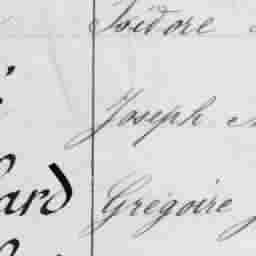 Isidore
Joseph
ard Grégoire